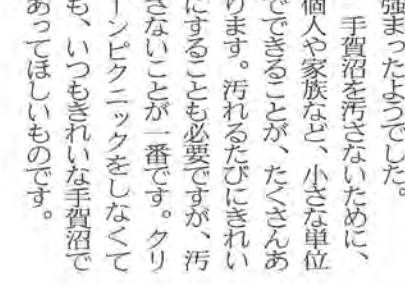 強まったようでした。
手賀沼を汚さないために、
個人や家族など、小さな単位
でできることが、たくさんあ
ります。汚れるたびにきれい
にすることも必要ですが、汚
さないことが一番です。クリ
ーンピクニックをしなくて
も、いつもきれいな手賀沼で
あってほしいものです。